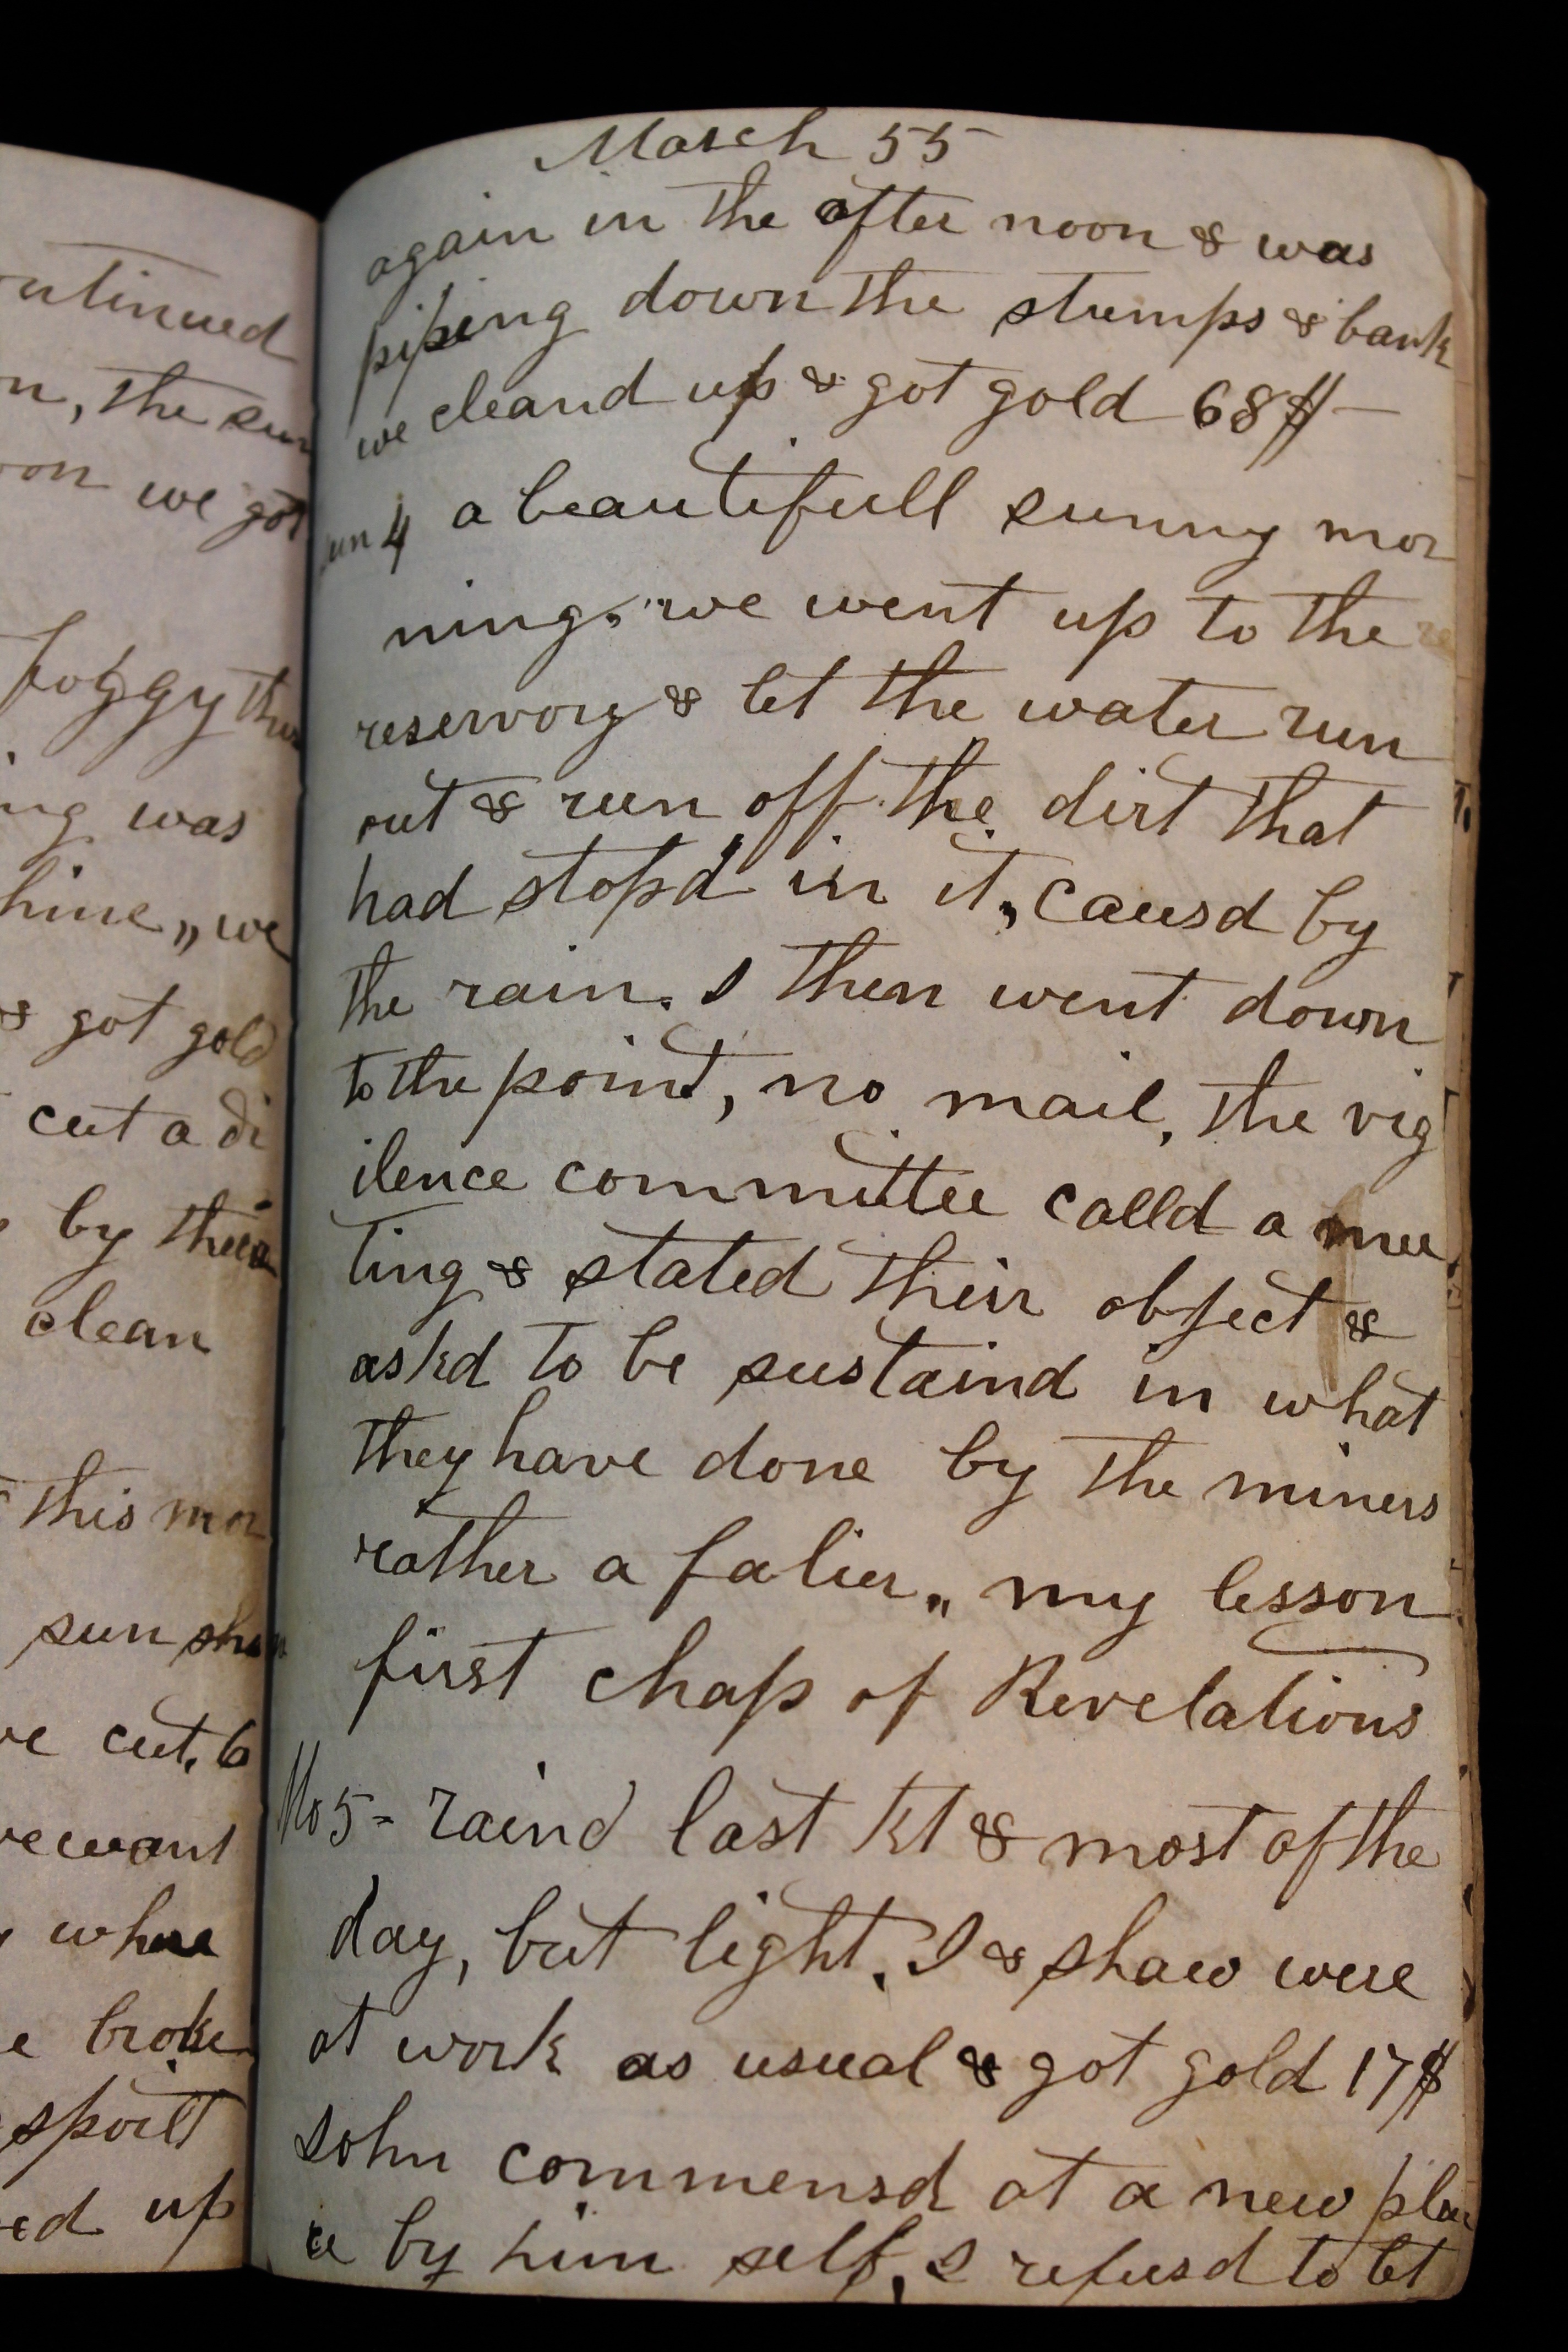 ontinued
n, the sun
oon we got
foggy this
ng was
hine,, we
& got gold
cut a di
by the
clean
this mor
sun shon
ve cut. 6
we want
whare
e broke
spoilt
ed up
March 55
again in the after noon & was
piping down the stumps & bank
we cleand up & got gold 68$ —
Sun 4 a beautifull sunny mor
ning. we went up to the
reservory & let the water run
out & run off the dirt that
had stop'd in it, causd by
the rain. I then went down
to the point, no mail, the vig
ilence committee calld a mee
ting & stated their object &
askd to be sustaind in what
they have done by the miners
rather a falier,, my lesson
first chap of Revelations
Mo 5 = raind last nt & most of the
day, but light. I & Shaw were
at work as usual & got gold 17$
John commensd at a new pla
ce by him self, I refusd to let